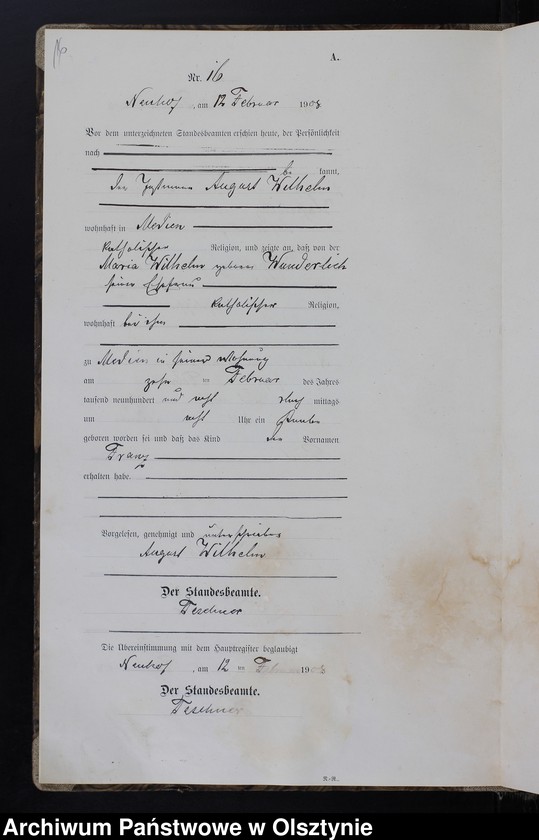 A.
Nr. 16
Neuhof, am 12 Februar 1908
Vor dem unterzeichneten Standesbeamten erschien heute, der Persönlichkeit
nach
be kannt,
der August Wilhelm
wohnhaft in Medien
katholischer Religion, und zeigte an, daß von der
Maria Wilhelm geborene Wunderlich
seiner Ehefrau
katholischer Religion,
wohnhaft bei ihm
zu Medien in seiner Wohnung
am zehn ten Februar des Jahres
tausend neunhundert und acht mittags
um acht Uhr ein Knabe
geboren worden sei und daß das Kind den Vornamen
Franz
erhalten habe.
Vorgelesen, genehmigt und unterschrieben
August Wilhelm
Der Standesbeamte.
Teschner
Die Übereinstimmung mit dem Hauptregister beglaubigt
Neuhof, am 12 ten Februar 1908
Der Standesbeamte.
Teschner
R.-R.
Archiwum Państwowe w Olsztynie